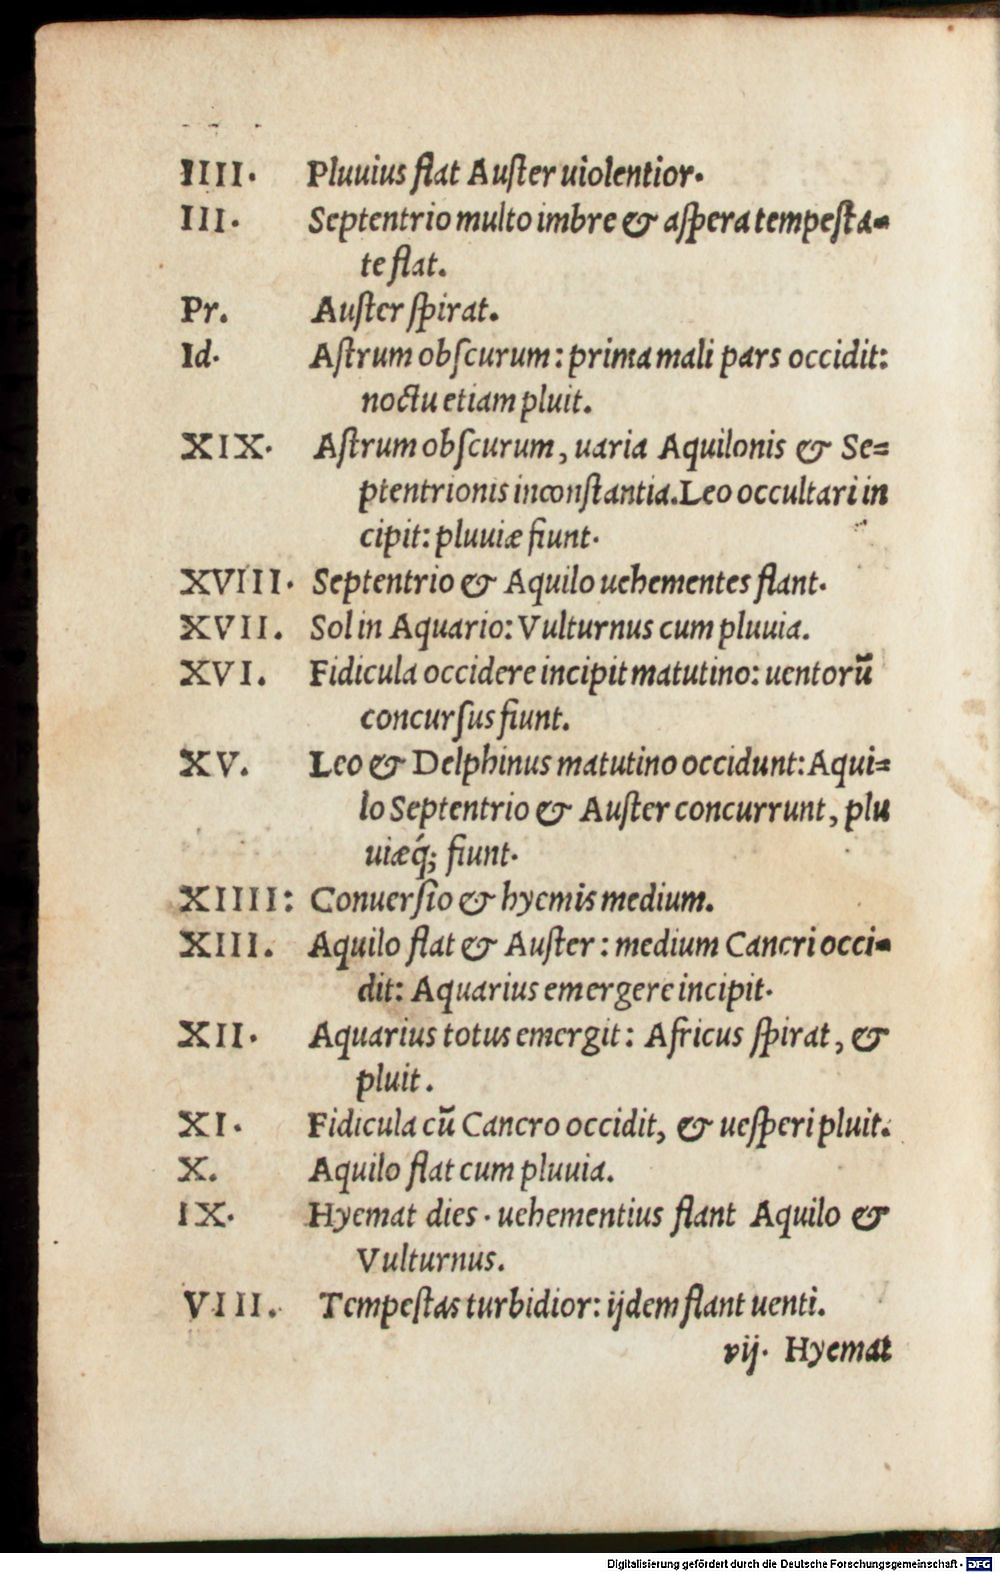 IIII. Pluuius flat Auſter uiolentior.
III. Septentrio multo imbre & aſpera tempeſta-
te flat.
Pr. Auſter ſpirat.
Id. Aſtrum obſcurum: prima mali pars occidit:
noctu etiam pluit.
XIX. Aſtrum obſcurum, uaria Aquilonis & Se=
ptentrionis inconſtantia. Leo occultari in
cipit: pluuiæ fiunt.
XVIII. Septentrio & Aquilo uehementes flant.
XVII. Sol in Aquario: Vulturnus cum pluuia.
XVI. Fidicula occidere incipit matutino: uentorū
concurſus fiunt.
XV. Leo & Delphinus matutino occidunt: Aqui=
lo Septentrio & Auſter concurrunt, plu
uiæq́; fiunt.
XIIII: Conuerſio & hyemis medium.
XIII. Aquilo flat & Auſter: medium Cancri occi-
dit: Aquarius emergere incipit.
XII. Aquarius totus emergit: Africus ſpirat, &
pluit.
XI. Fidicula cū Cancro occidit, & ueſperi pluit.
X. Aquilo flat cum pluuia.
IX. Hyemat dies. uehementius flant Aquilo &
Vulturnus.
VIII. Tempeſtas turbidior: ijdem flant uenti.
vij. Hyemat
Digitalisierung gefördert durch die Deutsche Forschungsgemeinschaft - DFG